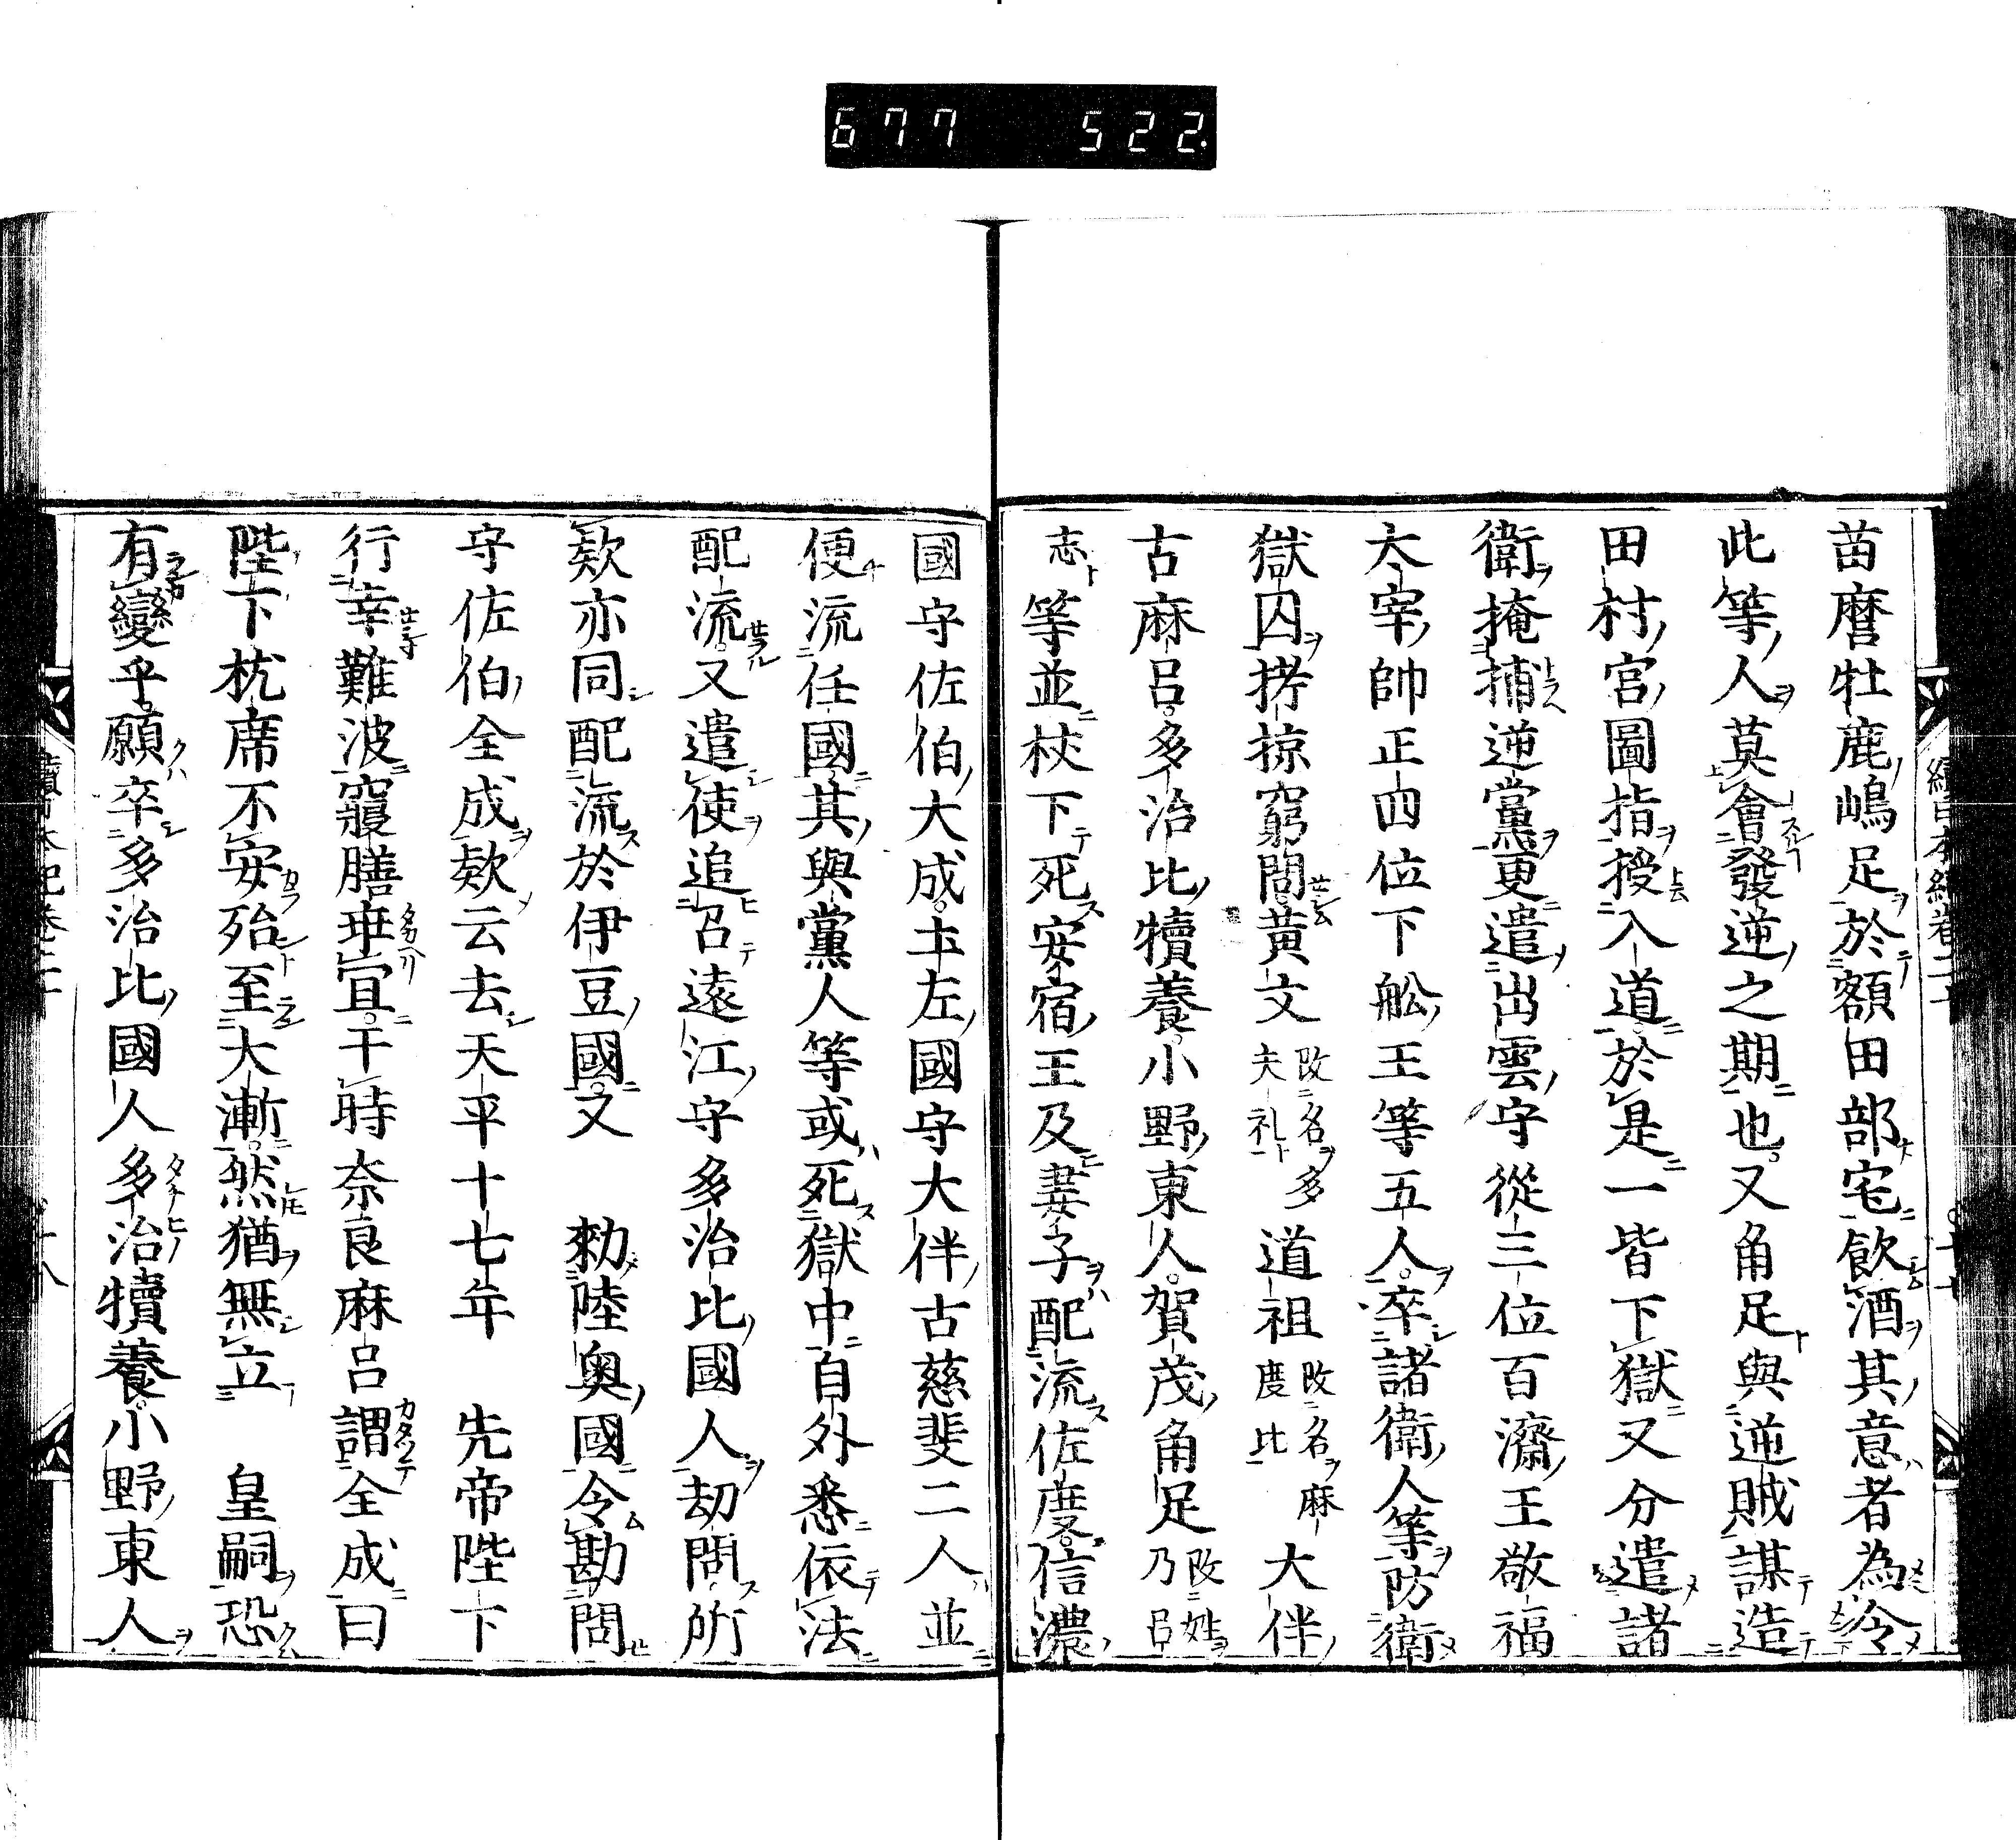 677 522.
苗麿牡鹿嶋足於額田部宅飲酒其意者為令
此等人莫會發逆之期也又角足與逆賊謀造
田村宮圖指授入道於是一皆下獄又分遣諸
衛掩捕逆黨更遣出雲守從三位百濟王敬福
太宰帥正四位下舩王等五人卒諸衛人等防衛
獄囚拷掠窮問黃文改名多夫礼道祖改名麻度比大伴
古麻呂多治比犢養小野東人賀茂角足改姓乃呂
志等並杖下死安宿王及妻子配流佐度信濃
國守佐伯大成土左國守大伴古慈斐二人並
便流任國其與黨人等或死獄中自外悉依法
配流又遣使追召遠江守多治比國人劫問所
欵亦同配流於伊豆國又 勑陸奧國令勘問
守佐伯全成欵云去天平十七年 先帝陛下
行幸難波寢膳乖宜于時奈良麻呂謂全成曰
陛下枕席不安殆至大漸然猶無立 皇嗣恐
有變乎願卒多治比國人多治犢養小野東人